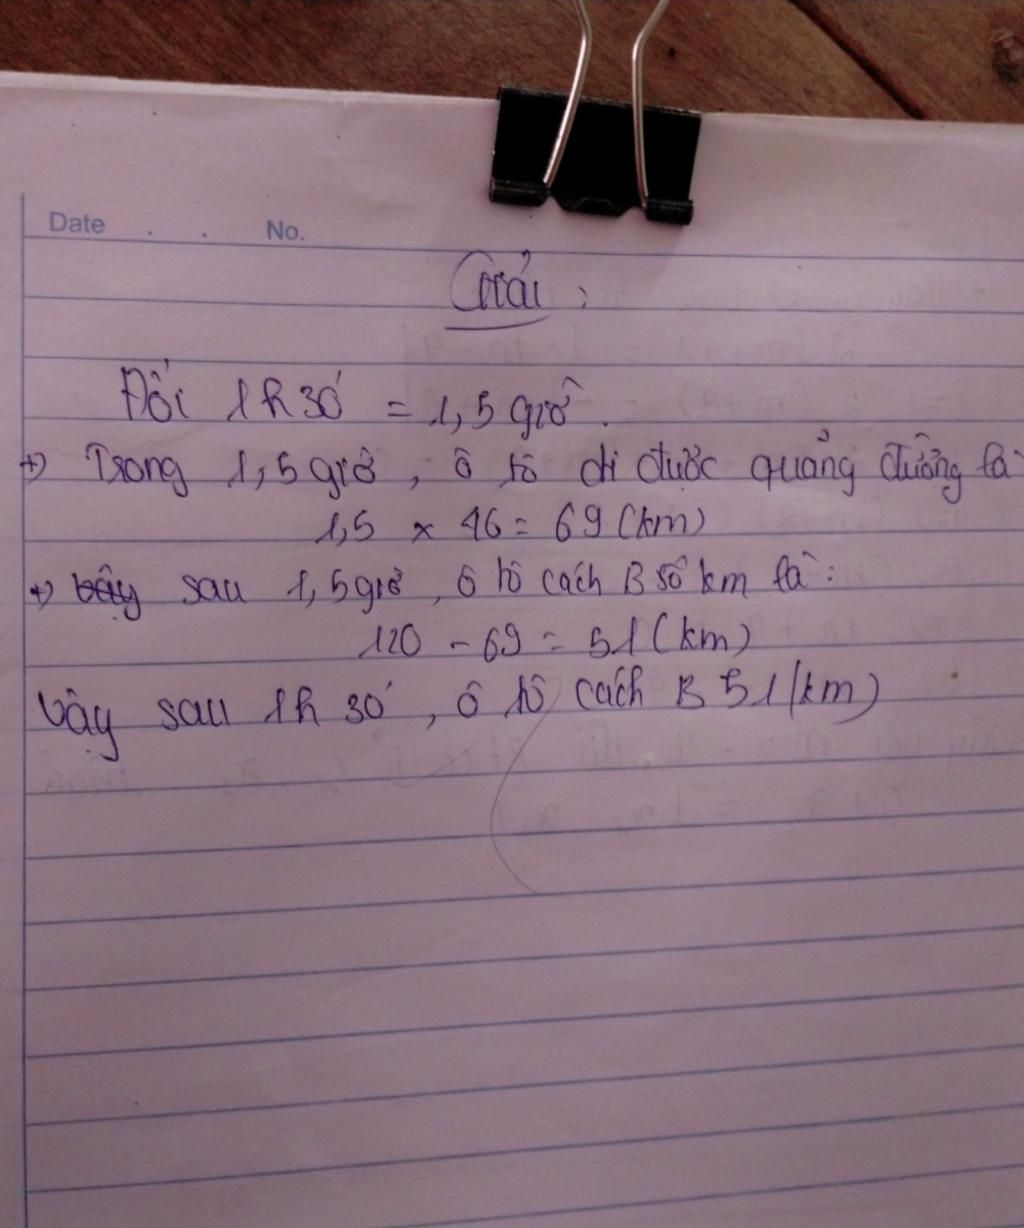 Date . . No.
Giải :
Đổi 1h30' = 1,5 giờ.
+) Trong 1,5 giờ, ô tô đi được quảng đường là
1,5 x 46 = 69 (km)
+) Vậy sau 1,5 giờ, ô tô cách B số km là :
120 - 69 = 51 (km)
Vậy sau 1h 30', ô tô cách B 51 (km)